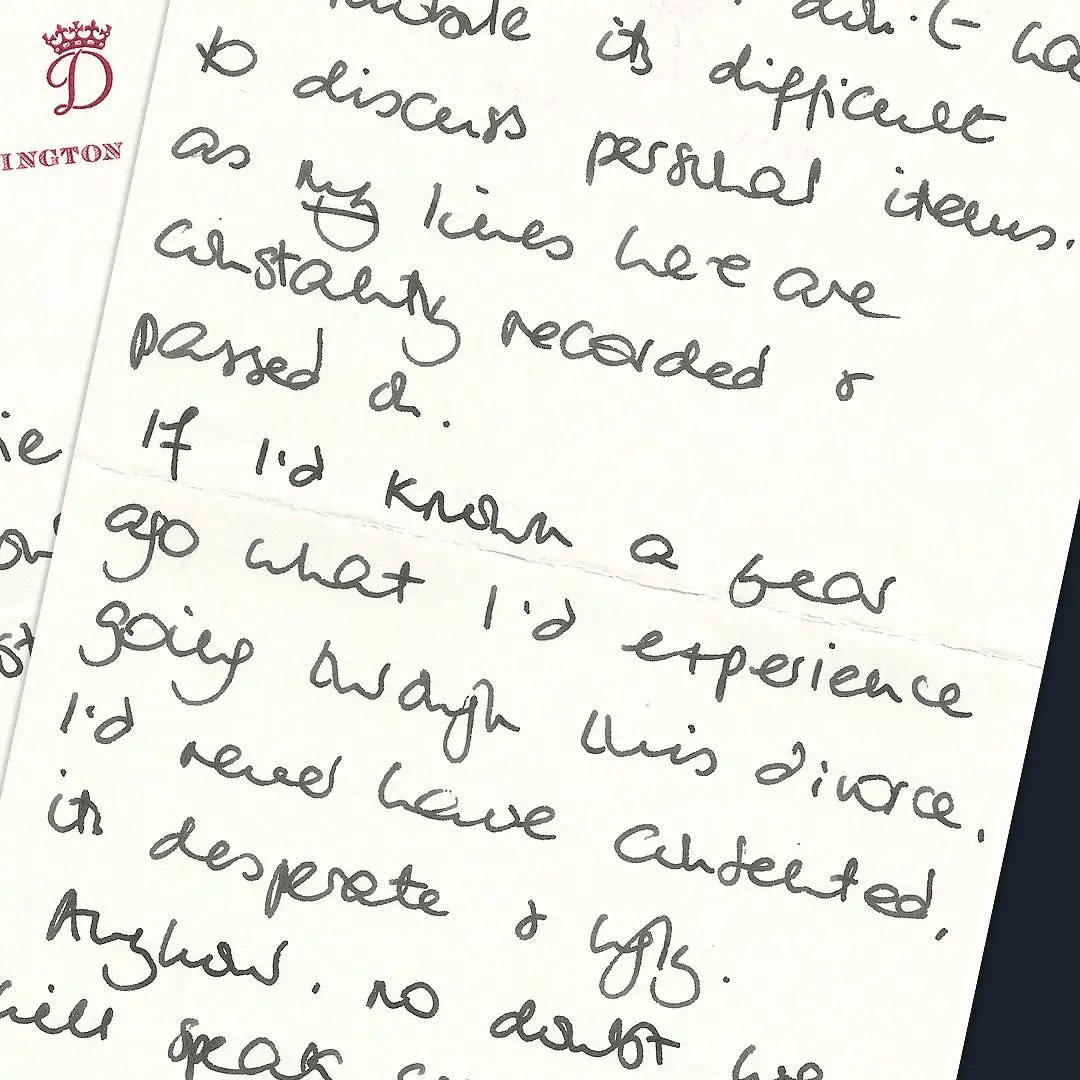 D
INGTON
its difficult
to discuss personal items.
as my lines here are
constantly recorded &
passed on.
If I'd known a year
ago what I'd experience
going through this divorce,
I'd never have consented,
its desperate & ugly.
Anyhow, no doubt we
will speak